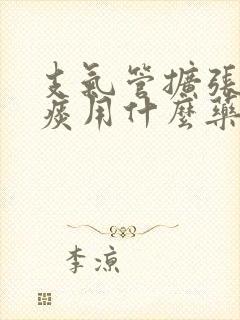 支氣管擴張
痰用什麼藥
李涼